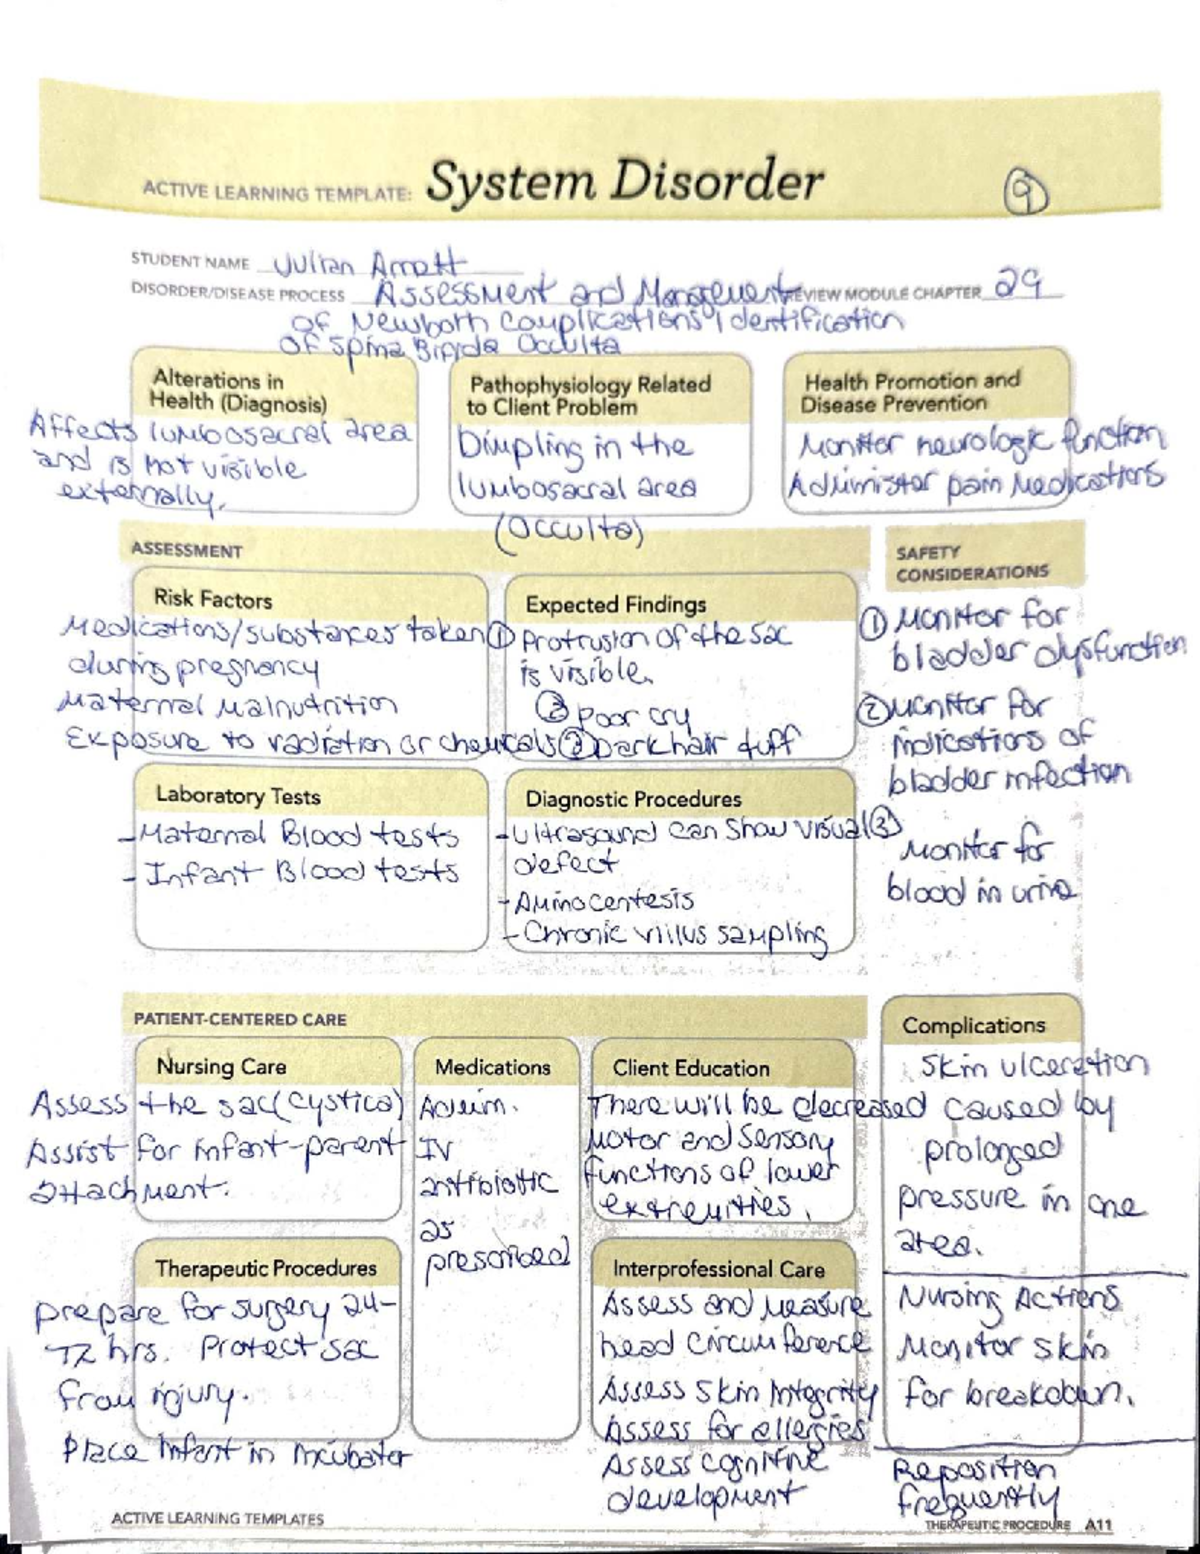 ACTIVE LEARNING TEMPLATE: System Disorder
9
STUDENT NAME Julian Arnott
DISORDER/DISEASE PROCESS Assessment and Management REVIEW MODULE CHAPTER 29
of Newborn Complications: Identification
of Spina Bifida Occulta
Alterations in
Health (Diagnosis)
Affects lumbosacral area
and is not visible
externally.
Pathophysiology Related
to Client Problem
Dimpling in the
lumbosacral area
(occulta)
Health Promotion and
Disease Prevention
Monitor neurologic function
Administer pain Medications
ASSESSMENT
SAFETY
CONSIDERATIONS
Risk Factors
Medications/substances taken
during pregnancy
Maternal Malnutrition
Exposure to radiation or chemicals
Expected Findings
① Protrusion of the sac
is visible.
② poor cry
③ Dark hair tuff
① Monitor for
bladder dysfunction
② Monitor for
indications of
bladder infection
③ Monitor for
blood in urine
Laboratory Tests
- Maternal Blood tests
- Infant Blood tests
Diagnostic Procedures
- Ultrasound can show visual
defect
- Aminocentesis
- Chronic villus sampling
PATIENT-CENTERED CARE
Nursing Care
Assess the sac (cystica)
Assist for infant-parent
attachment.
Medications
Admin.
IV
antibiotic
as
prescribed
Client Education
There will be decreased
motor and sensory
functions of lower
extremities.
Complications
Skin ulceration
caused by
prolonged
pressure in one
area.
Nursing Actions
Monitor skin
for breakdown.
Reposition
frequently
Therapeutic Procedures
prepare for surgery 24-
72 hrs. Protect sac
from injury.
Place infant in incubator
Interprofessional Care
Assess and measure
head circumference
Assess skin integrity
Assess for allergies
Assess cognitive
development
ACTIVE LEARNING TEMPLATES
THERAPEUTIC PROCEDURE A11